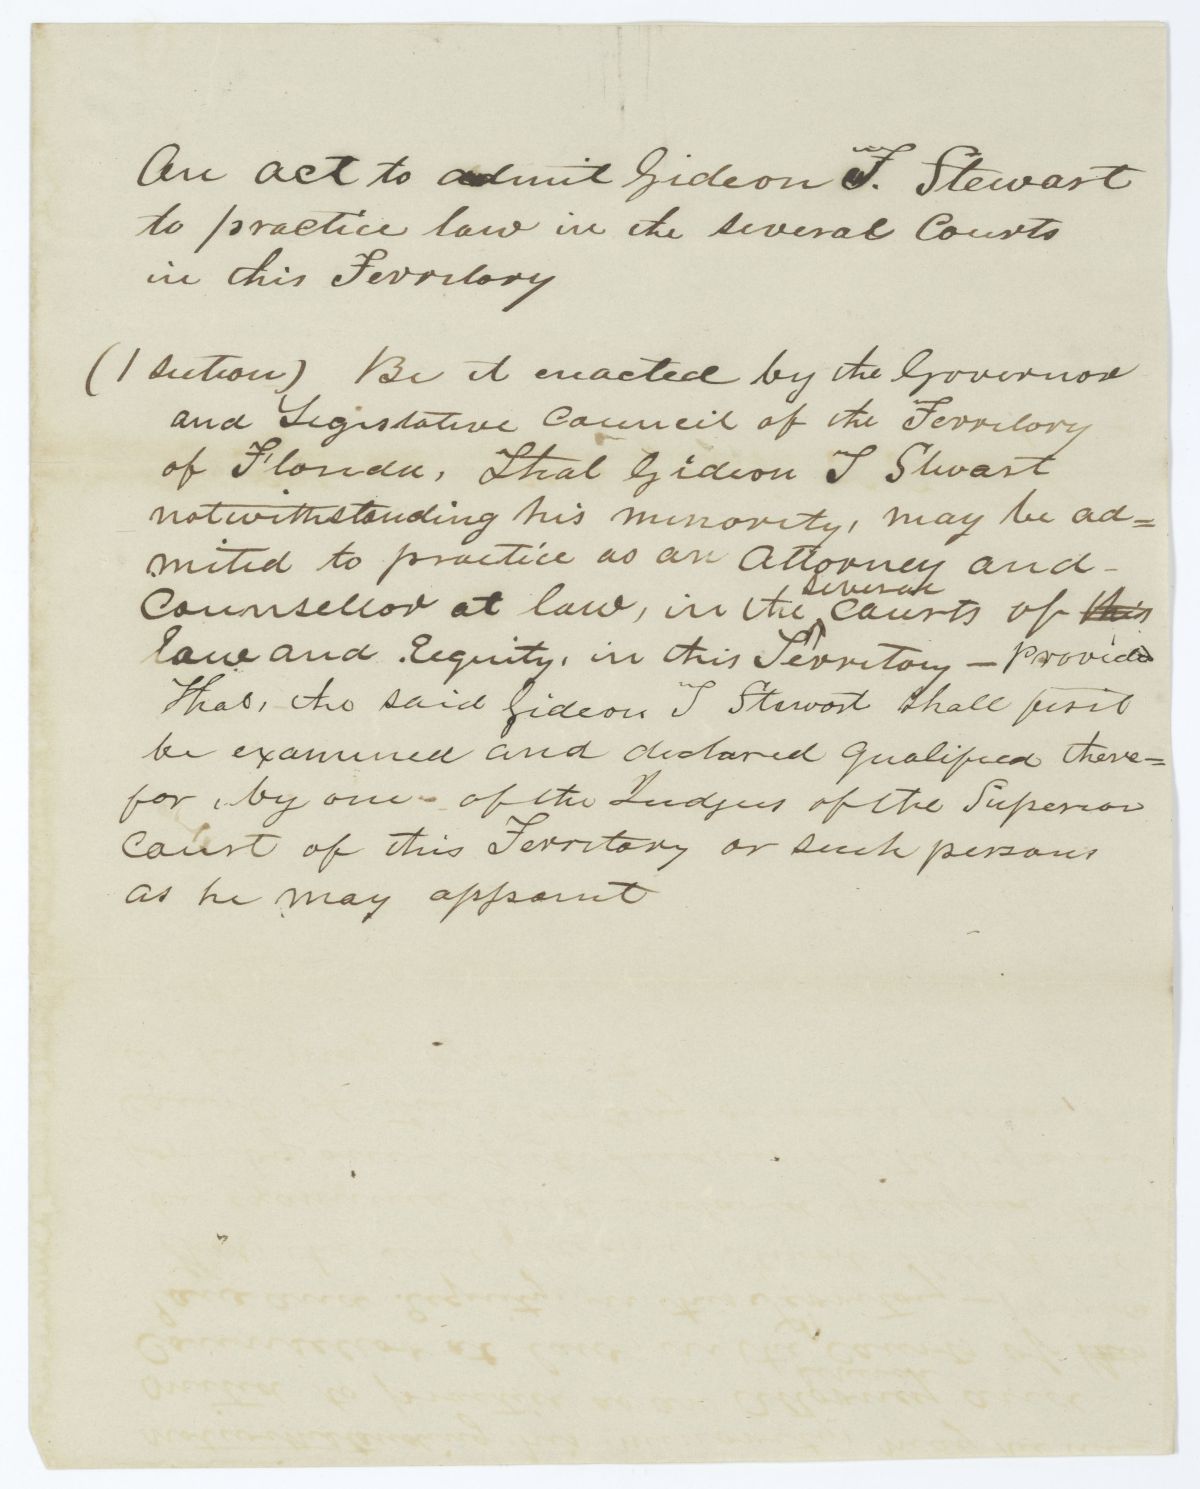 An act to admit Gideon T. Stewart
to practice law in the several Courts
in this Territory
(1 section) Be it enacted by the Governor
and Legislative Council of the Territory
of Florida, That Gideon T Stewart
notwithstanding his minority, may be ad=
mited to practice as an Attorney and
Counsellor at law, in the several Courts of this
law and Equity, in this Territory – provided
That, the said Gideon T Stewart shall first
be examined and declared qualified there=
for, by one of the Judges of the Superior
Court of this Territory or such persons
as he may appoint